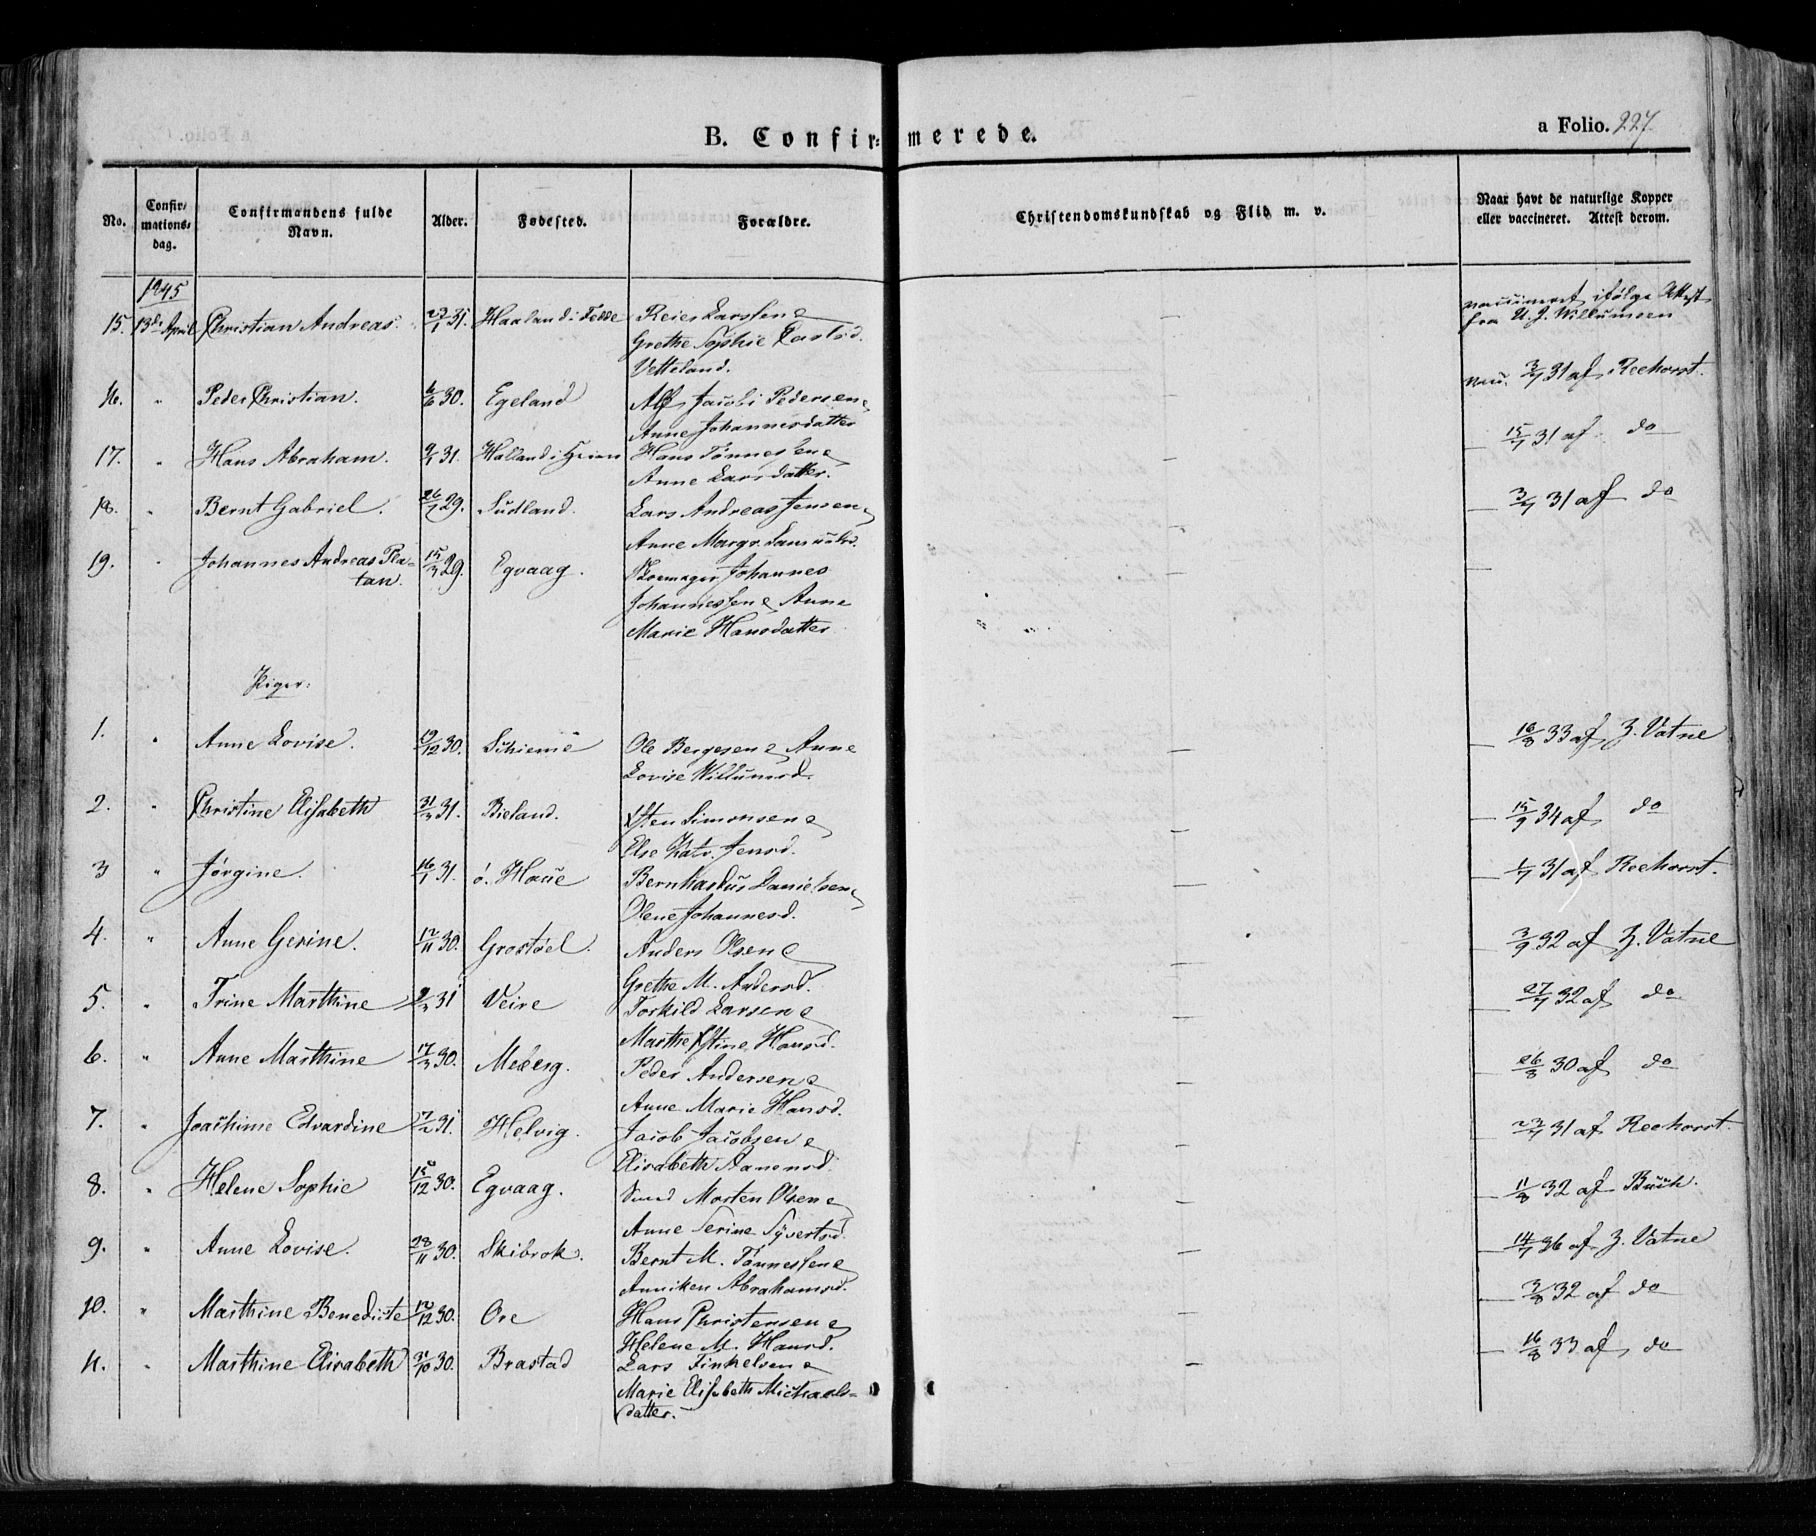 B. Confir- merede.
a Folio. 227
No.
Confir-
mations-
dag.
Confirmandens fulde
Navn.
Alder.
Fødested.
Forældre.
Christendomskundskab og Flid m. v.
Naar havt de naturlige Kopper
eller vaccineret. Attest derom.
1845
15. 13de April Christian Andreas. 31. Haaland i Fedde Reier Larssen
Grethe Sophie
Vetteland.
vaccineret ifølge Attest
fra Willumsen
16. " Peder Christian. 6/6 30. Egeland Alf Jacobi Pedersen
Anne Johannesdatter
vacc. 3/7 31 af Reehorst.
17. " Hans Abraham. 31. Halland i Hærem Hans Tønnessen
Anne Larsdatter.
15/7 31 af do
18. " Bernt Gabriel. 29. Sudland. Lars Andreas Jensen
Anne Margr.
3/7 31 af do
19. " Johannes Andreas Pla-
tan. 15/3 29. Egvaag. Johannes
Johannessen Anne
Marie Hansdatter
Piger:
1. " Anne Lovise. 19/12 30. Ole Bergesen Anne
Lovise Willumsd.
16/8 33 af Z. Vatne
2. " Christine Elisabeth 31/3 31. Bieland. Sten Simonsen
Else Katr. Jensd.
15/9 34 af do
3 " Jørgine. 16/1 31. ø. Haue Bernhardus Danielsen
Olene Johannesd.
1/7 31 af Reehorst.
4. " Anne Gerine. 12/11 30. Grostøel. Anders Olsen
Grethe M. Andersd.
3/9 32 af Z. Vatne
5. " Trine Marthine 31 Veire Torkild Larsen
Marthe Stine Hansd.
27/7 32 af do
6. " Anne Marthine 17/3 30. Meberg. Peder Andersen
Anne Marie Hansd.
26/8 30 af do
7. " Joachime Edvardine 17/2 31. Helvig. Jacob Jacobsen
Elisabeth Aanensd.
31 af Reehorst.
8. " Helene Sophie 15/12 30. Egvaag. Morten Olsen
Anne Serine Syvertsd
11/8 32 af Buch.
9. " Anne Lovise. 28/11 30. Skibrok. Bernt M. Tønnessen
Anniken Abrahamsd.
14/7 36 af Z. Vatne
10. " Marthine Benedicte 12/12 30. Ore Hans Christensen
Helene M. Hansd.
3/8 32 af do
11. " Marthine Elisabeth 30. Brastad Lars Finkelsen
Marie Elisabeth Michaels-
datter.
16/8 33 af do